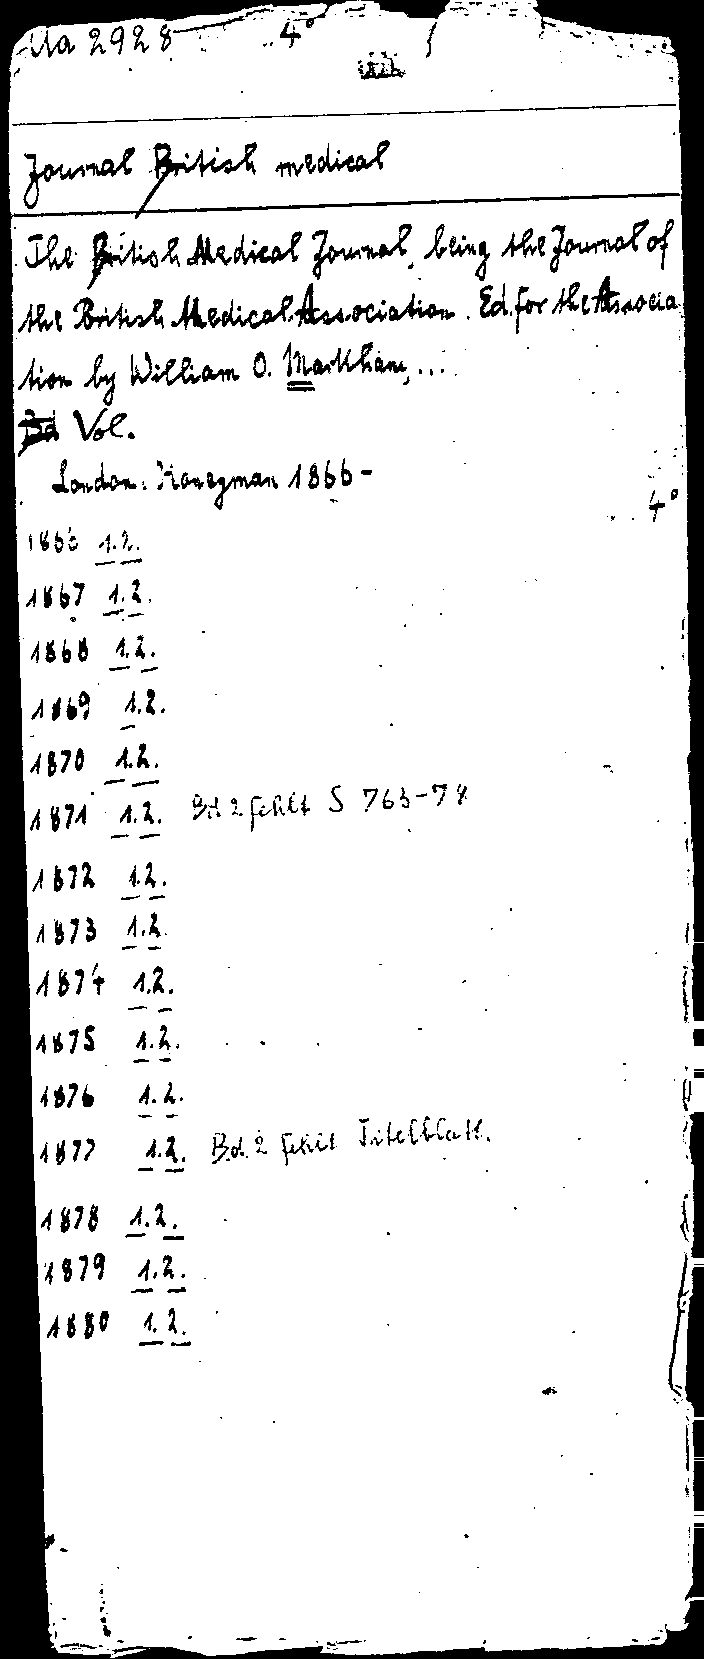 Ua 2928 4°
Journal British medical
The British Medical Journal, being the Journal of
the British Medical Association. Ed. for the Associa
tion by William O. Markham, ...
Bd Vol.
London: Honeyman 1866-
4°
1866 1.2.
1867 1.2.
1868 1.2.
1869 1.2.
1870 1.2.
1871 1.2. Bd 2 fehlt S 763-78
1872 1.2.
1873 1.2.
1874 1.2.
1875 1.2.
1876 1.2.
1877 1.2. Bd. 2 fehlt Titelblatt.
1878 1.2.
1879 1.2.
1880 1.2.